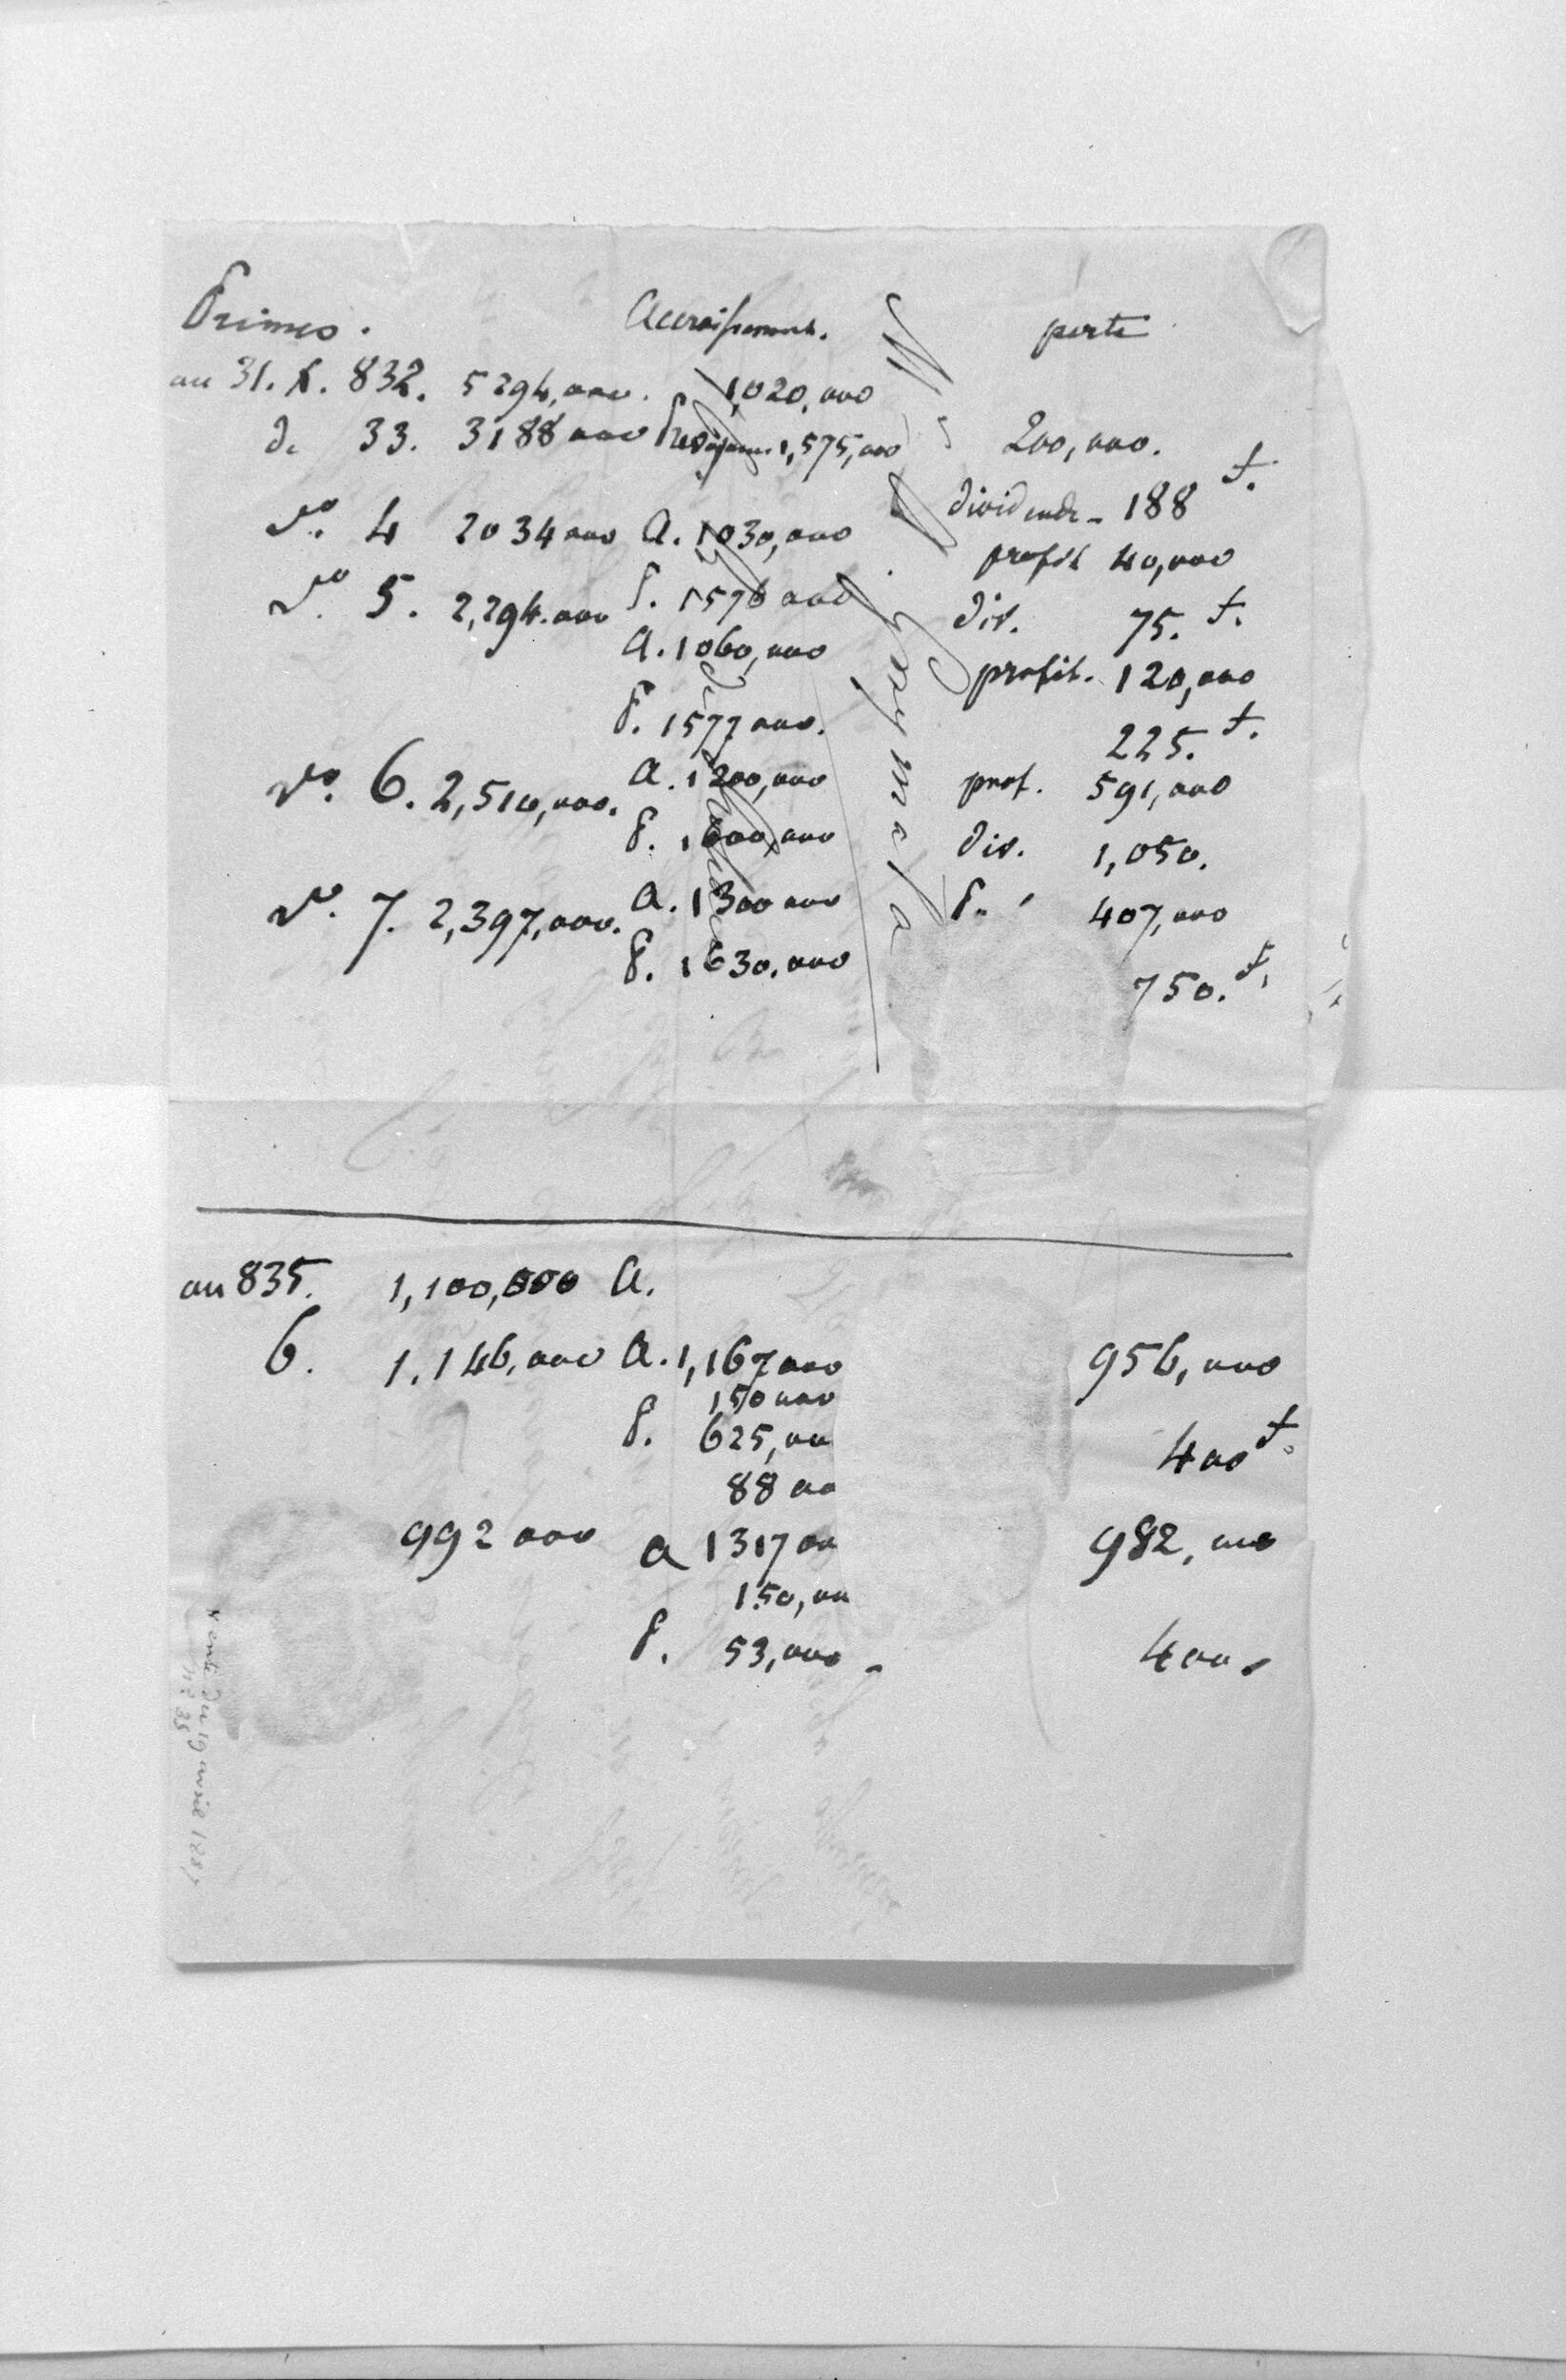 Primes. Accroissement. perte
au 31. X. 832. 5294,000. 1,020,000
do 33. 3188 000 1,575,000 200,000.
dividende - 188 f.
do. 4 2034 000 A. 1030,000
profit 40,000
do. 5. 2,294.000 P. 1576 000 div. 75. f.
A. 1060,000 profit. 120,000
P. 1577 000. 225. f.
do. 6. 2,510,000. A. 1200,000 prof. 591,000
P. 1600,000 div. 1,050.
do. 7. 2,397,000. A. 1300 000 P. 407,000
P. 1630.000 750. f.
au 835. 1,100,000 A.
6. 1.146,000 A. 1,167 000 956,000
150 000
P. 625,00 400 f.
88 00
992 000 a 1317 00 982,000
150,00
P. 53,000 - 400.
Vente du 19 avril 1887
no 35